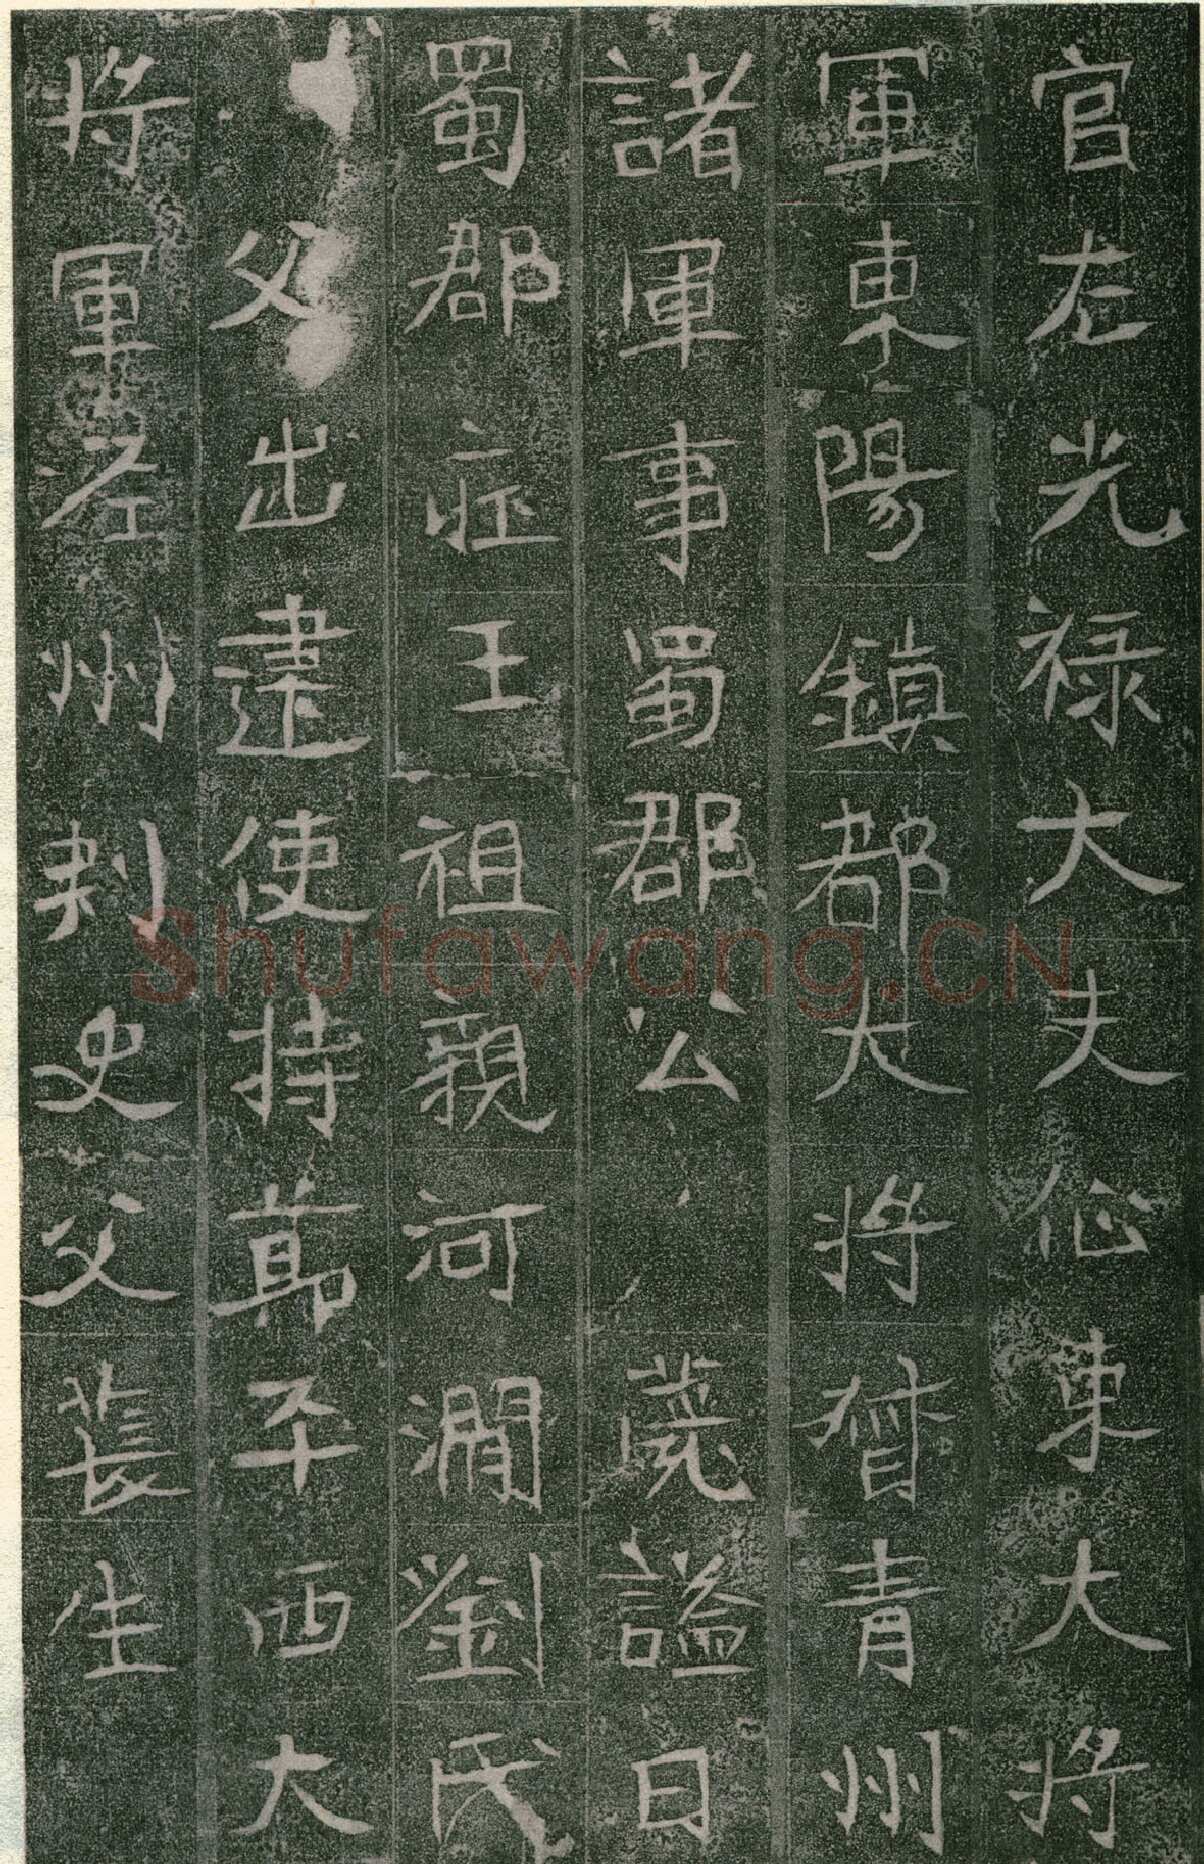 官左光禄大夫征東大將
軍東陽鎮都大將督青州
諸軍事蜀郡公薨諡曰
蜀郡莊王祖親河澗劉氏
父出建使持節平西大
將軍左州刺史父萇生
Shufawang.CN